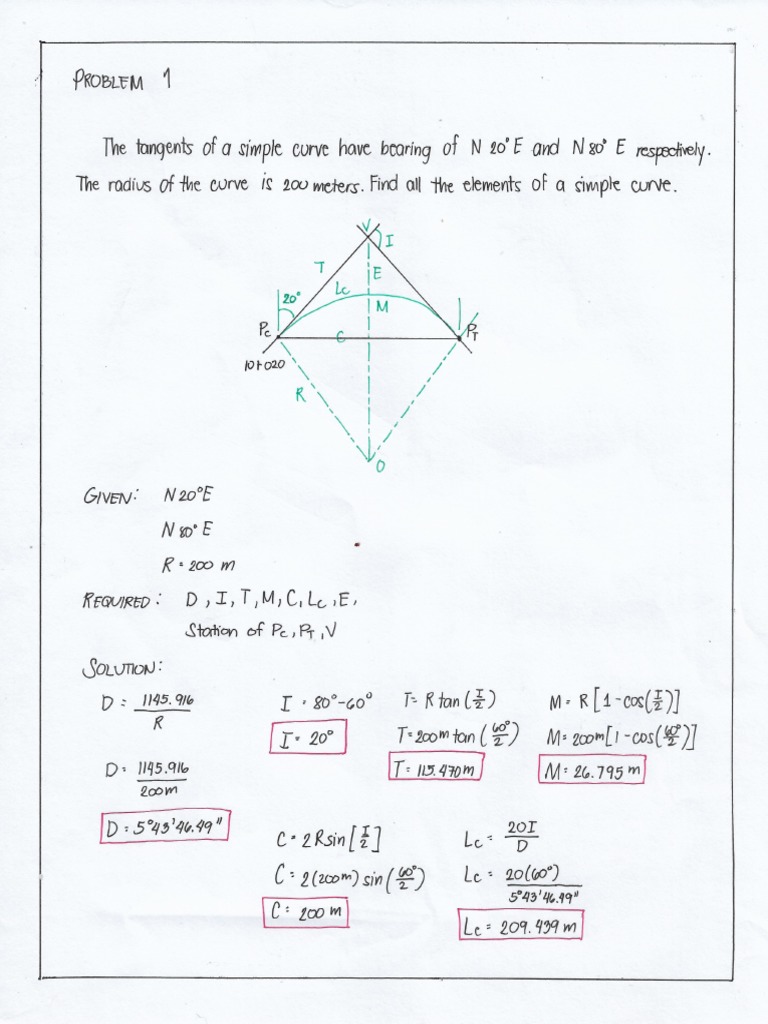 PROBLEM 1
The tangents of a simple curve have bearing of N 20° E and N 80° E respectively.
The radius of the curve is 200 meters. Find all the elements of a simple curve.
V
I
T
E
Lc
20°
M
Pc
PT
C
10+020
R
O
GIVEN: N 20° E
N 80° E
R = 200 m
REQUIRED: D, I, T, M, C, Lc, E,
Station of Pc, PT, V
SOLUTION:
D = 1145.916 / R
D = 1145.916 / 200m
D = 5°43'46.49"
I = 80° - 60°
I = 20°
T = R tan (I/2)
T = 200m tan (60°/2)
T = 115.470 m
M = R [1 - cos(I/2)]
M = 200m [1 - cos(60°/2)]
M = 26.795 m
C = 2Rsin [I/2]
C = 2(200m) sin (60°/2)
C = 200 m
Lc = 20I / D
Lc = 20(60°) / 5°43'46.49"
Lc = 209.439 m